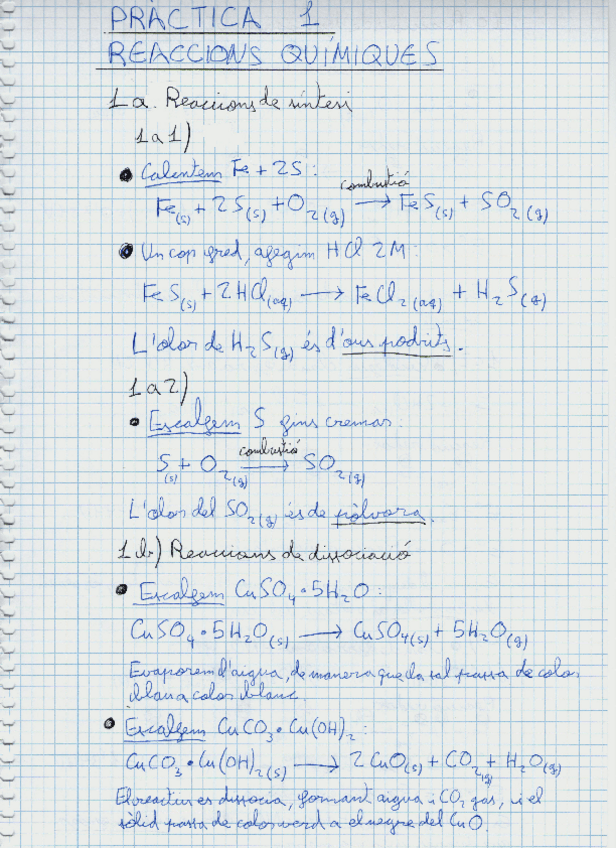 PRÀCTICA 1
REACCIONS QUÍMIQUES
1a. Reaccions de síntesi
1a1)
• Calentem Fe + 2S:
Fe(s) + 2S(s) + O2(g) ⟶ combustió FeS(s) + SO2(g)
• Un cop fred, afegim HCl 2M:
FeS(s) + 2HCl(aq) ⟶ FeCl2(aq) + H2S(g)
L'olor de H2S(g) és d'ous podrits.
1a2)
• Escalfem S fins cremar.
S(s) + O2(g) ⟶ combustió SO2(g)
L'olor del SO2(g) és de pólvora.
1b) Reaccions de dissociació
• Escalfem CuSO4·5H2O:
CuSO4·5H2O(s) ⟶ CuSO4(s) + 5H2O(g)
Evaporem d'aigua, de manera que la sal passa de color
blau a color blanc.
• Escalfem CuCO3·Cu(OH)2:
CuCO3·Cu(OH)2(s) ⟶ 2CuO(s) + CO2(g) + H2O(g)
El reactiu es dissocia, formant aigua i CO2 gas, i el
sòlid passa de color verd a el negre del CuO.